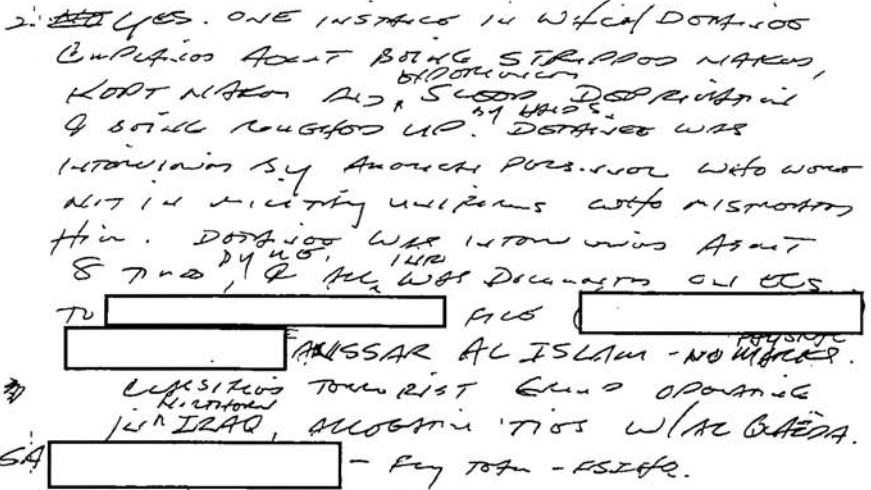 2. NO YES. ONE INSTANCE IN WHICH DETAINEE
COMPLAINED ABOUT BEING STRIPPED NAKED,
EXPERIENCING
KEPT NAKED AND SLEEP DEPRIVATION
BY HANDS.
& BEING ROUGHED UP. DETAINEE WAS
INTERVIEWED BY AMERICAN PERSONNEL WHO WORE
NOT IN MILITARY UNIFORMS WHO MISTREATED
HIM. DETAINEE WAS INTERVIEWED ABOUT
8 TIMES BY ME, & ALL INFO WAS DOCUMENTED ON ECS
TO FILE (
PHYSICAL
ANSSAR AL ISLAM - NO MARKS.
CLASSIFIED TERRORIST GROUP OPERATING
NORTHERN
IN IRAQ, ALLEGATION TIES W/AL QAEDA.
SA - FLY TEAM - FBIHQ.